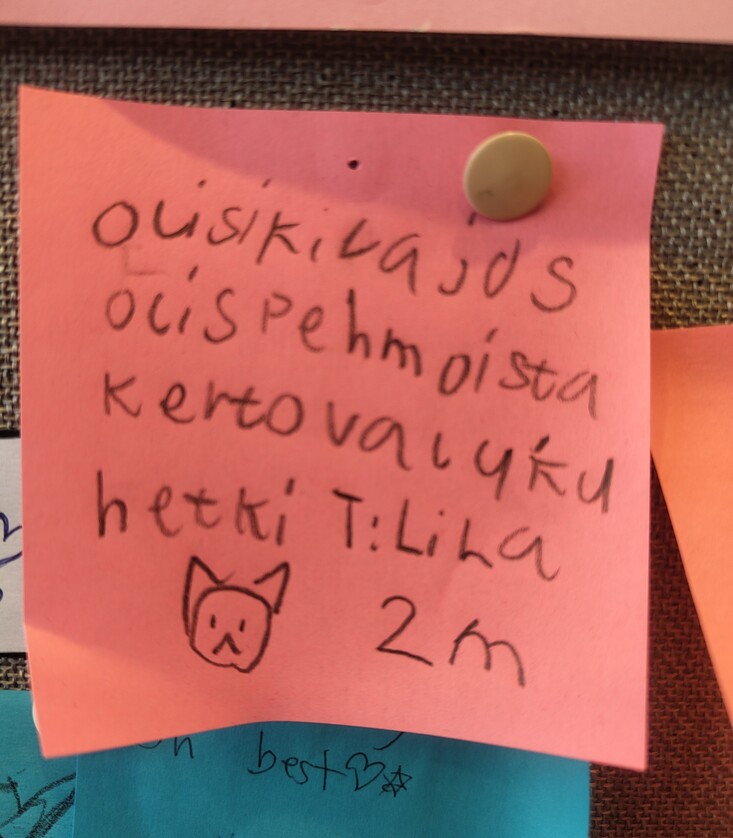 olisikiva jos
olis pehmoista
kertova lyku
hetki T:LiLa
2m
best♡☆